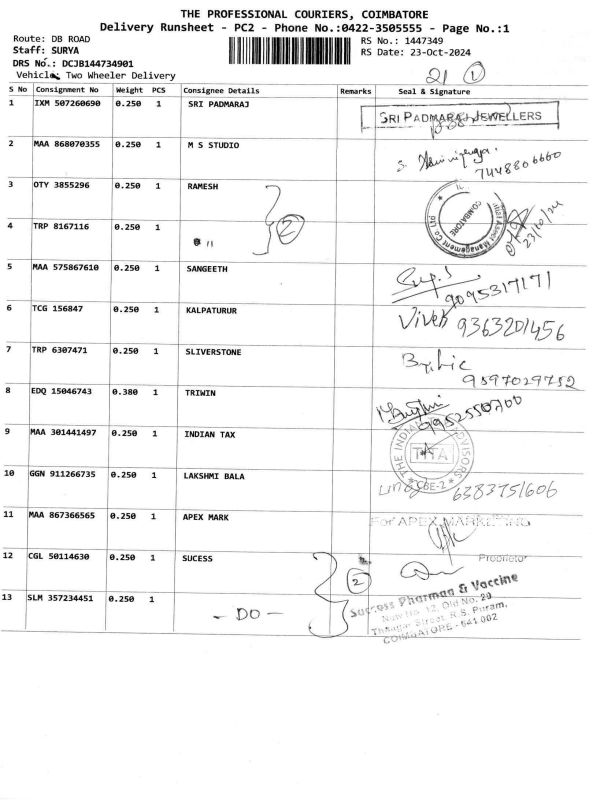 THE PROFESSIONAL COURIERS, COIMBATORE
Delivery Runsheet - PC2 - Phone No.:0422-3505555 - Page No.:1
Route: DB ROAD
RS No.: 1447349
Staff: SURYA
RS Date: 23-Oct-2024
DRS No.: DCJB144734901
Vehicle: Two Wheeler Delivery
21 1
S No Consignment No Weight PCS Consignee Details Remarks Seal & Signature
1 IXM 507260690 0.250 1 SRI PADMARAJ
SRI PADMARAJ JEWELLERS
2 MAA 868070355 0.250 1 M S STUDIO
7448806660
3 OTY 3855296 0.250 1 RAMESH
2
COIMBATORE
23/10/24
4 TRP 8167116 0.250 1
11
5 MAA 575867610 0.250 1 SANGEETH
9095317171
6 TCG 156847 0.250 1 KALPATURUR
Vivek 9363201456
7 TRP 6307471 0.250 1 SLIVERSTONE
9597029752
8 EDQ 15046743 0.380 1 TRIWIN
9952550700
9 MAA 301441497 0.250 1 INDIAN TAX
THE INDIAN TAX ADVISORS
TITA
CBE-2
10 GGN 911266735 0.250 1 LAKSHMI BALA
6383751606
11 MAA 867366565 0.250 1 APEX MARK
For APEX MARKETING
Proprietor
12 CGL 50114630 0.250 1 SUCESS
2
13 SLM 357234451 0.250 1
- DO -
Success Pharmaa & Vaccine
New No. 12, Old No. 29
Thiagar Street, R.S. Puram,
COIMBATORE - 641 002